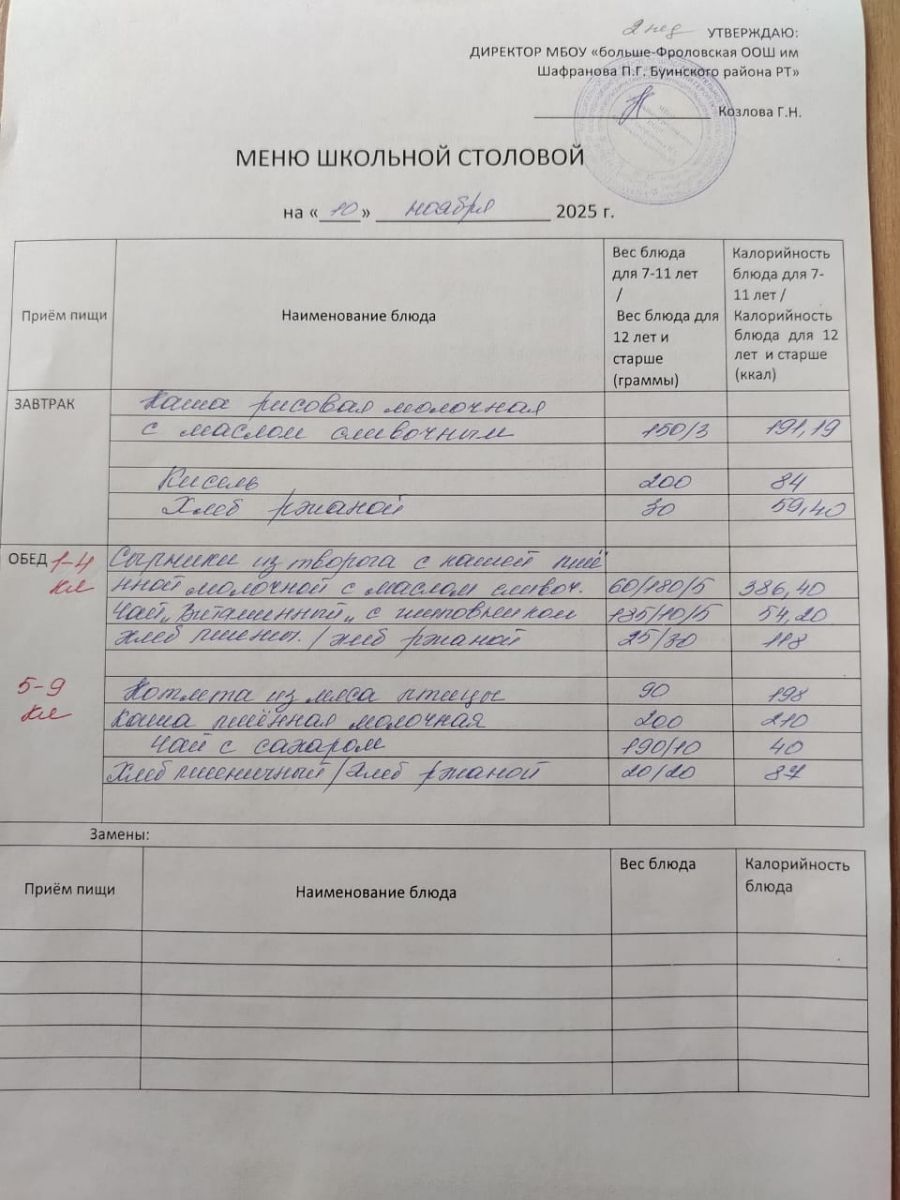 2 нед УТВЕРЖДАЮ:
ДИРЕКТОР МБОУ «больше-Фроловская ООШ им
Шафранова П.Г. Буинского района РТ»
Козлова Г.Н.
МЕНЮ ШКОЛЬНОЙ СТОЛОВОЙ
на « 10 » ноября 2025 г.
Приём пищи
Наименование блюда
Вес блюда
для 7-11 лет
/
Вес блюда для
12 лет и
старше
(граммы)
Калорийность
блюда для 7-
11 лет /
Калорийность
блюда для 12
лет и старше
(ккал)
ЗАВТРАК Каша рисовая молочная
с маслом сливочным 150/3 191,19
Кисель 200 84
Хлеб ржаной 30 59,40
ОБЕД 1-4 Сырники из творога с кашей пшё
кл нной молочной с маслом сливоч. 60/180/5 386,40
Чай „Витаминный„ с шиповником 185/10/5 54,20
Хлеб пшенич. / хлеб ржаной 25/30 118
5-9 Котлета из мяса птицы 90 198
кл Каша пшённая молочная 200 210
Чай с сахаром 190/10 40
Хлеб пшеничный / Хлеб ржаной 20/20 87
Замены:
Приём пищи
Наименование блюда
Вес блюда
Калорийность
блюда